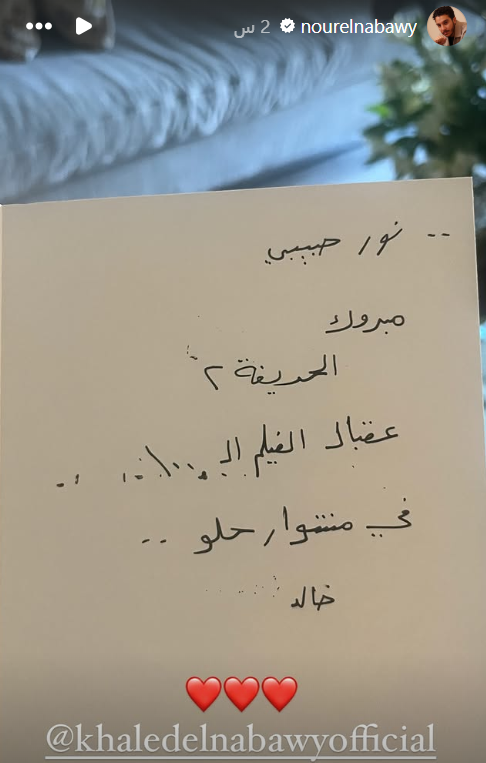 nourelnabawy 2 س
نور حبيبي ..
مبروك
الحريفة ٢
عقبال الفيلم الـ
في مشوار حلو ..
خالد
❤️❤️❤️
@khaledelnabawyofficial